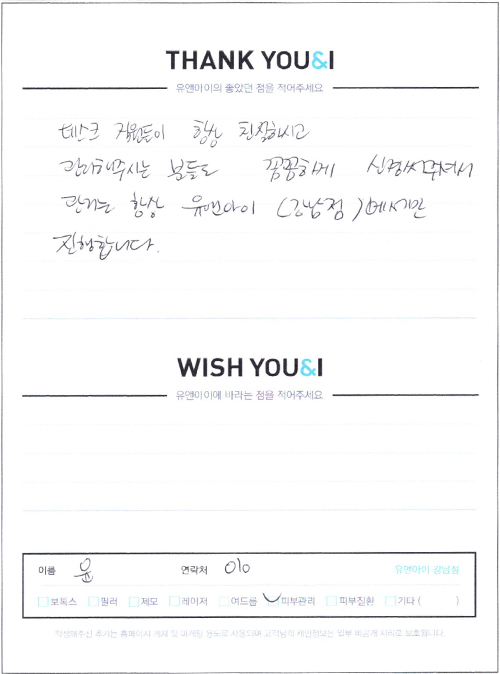 THANK YOU&I
유앤아이의 좋았던 점을 적어주세요
데스크 직원들이 항상 친절하시고
관리해주시는 분들도 꼼꼼하게 신경써주셔서
관리는 항상 유앤아이 (강남점)에서만
진행합니다.
WISH YOU&I
유앤아이에 바라는 점을 적어주세요
이름 윤 연락처 010 유앤아이 강남점
보톡스 필러 제모 레이저 여드름 피부관리 피부질환 기타 ( )
작성해주신 후기는 홈페이지 게재 및 마케팅 용도로 사용되며 고객님의 개인정보는 일부 비공개 처리로 보호됩니다.